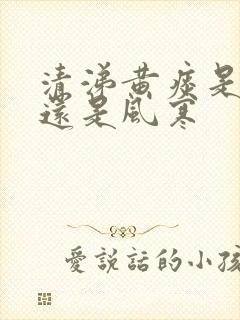 清涕黃痰是
還是風寒
愛說話的小孩